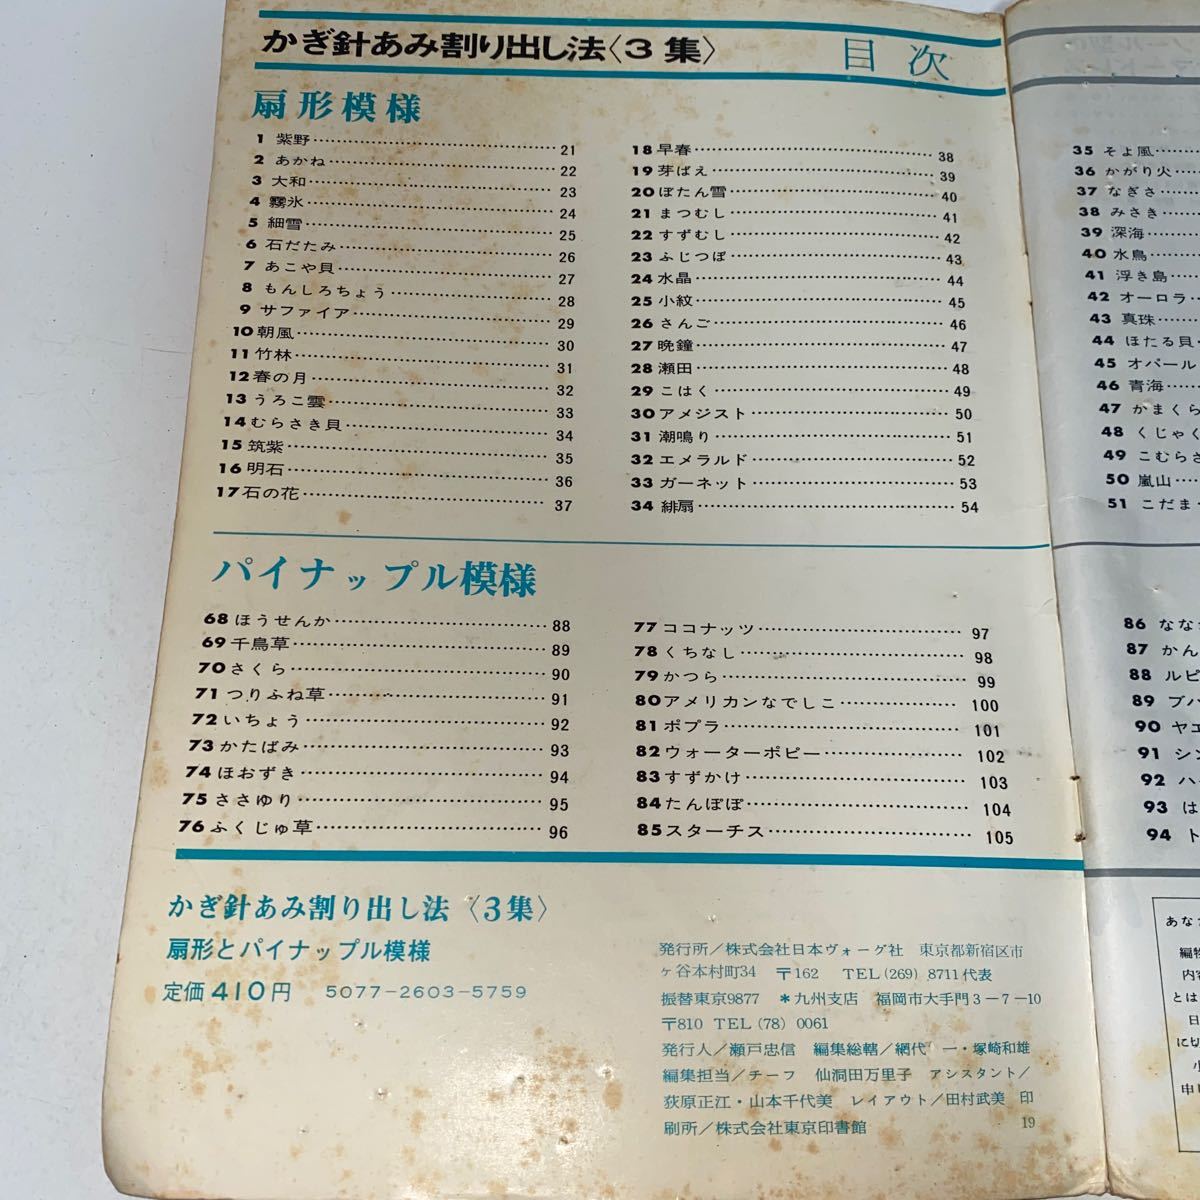 かぎ針あみ割り出し法〈3集〉 目次
扇形模様
1 紫野 21
2 あかね 22
3 大和 23
4 霧氷 24
5 細雪 25
6 石だたみ 26
7 あこや貝 27
8 もんしろちょう 28
9 サファイア 29
10 朝風 30
11 竹林 31
12 春の月 32
13 うろこ雲 33
14 むらさき貝 34
15 筑紫 35
16 明石 36
17 石の花 37
18 早春 38
19 芽ばえ 39
20 ぼたん雪 40
21 まつむし 41
22 すずむし 42
23 ふじつぼ 43
24 水晶 44
25 小紋 45
26 さんご 46
27 晩鐘 47
28 瀬田 48
29 こはく 49
30 アメジスト 50
31 潮鳴り 51
32 エメラルド 52
33 ガーネット 53
34 緋扇 54
35 そよ風
36 かがり火
37 なぎさ
38 みさき
39 深海
40 水鳥
41 浮き島
42 オーロラ
43 真珠
44 ほたる貝
45 オパール
46 青海
47 かまくら
48 くじゃく
49 こむらさ
50 嵐山
51 こだま
パイナップル模様
68 ほうせんか 88
69 千鳥草 89
70 さくら 90
71 つりふね草 91
72 いちょう 92
73 かたばみ 93
74 ほおずき 94
75 ささゆり 95
76 ふくじゅ草 96
77 ココナッツ 97
78 くちなし 98
79 かつら 99
80 アメリカンなでしこ 100
81 ポプラ 101
82 ウォーターポピー 102
83 すずかけ 103
84 たんぽぽ 104
85 スターチス 105
86 なな
87 かん
88 ルピ
89 ブバ
90 ヤエ
91 シン
92 ハ
93 は
94 ト
かぎ針あみ割り出し法〈3集〉
扇形とパイナップル模様
定価410円 5077-2603-5759
発行所／株式会社日本ヴォーグ社 東京都新宿区市
ヶ谷本村町34 〒162 TEL (269) 8711代表
振替東京9877 ＊九州支店 福岡市大手門3-7-10
〒810 TEL (78) 0061
発行人／瀬戸忠信 編集総轄／網代 一・塚崎和雄
編集担当／チーフ 仙洞田万里子 アシスタント／
荻原正江・山本千代美 レイアウト／田村武美 印
刷所／株式会社東京印書館 19
あな
編物
内容
とは
日
に切
小
申し